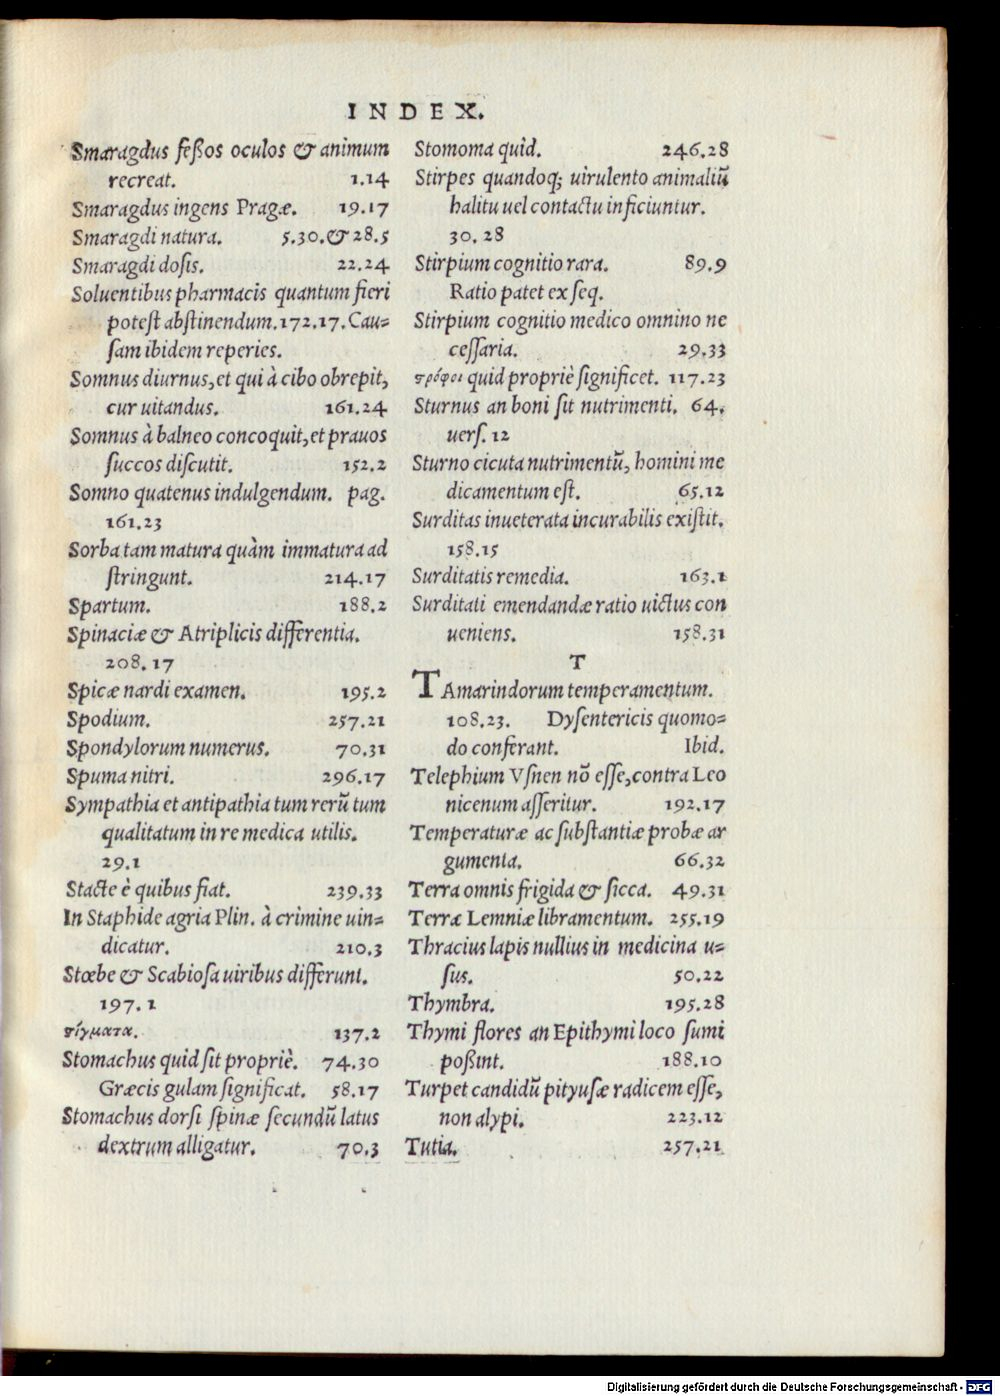 INDEX.
Smaragdus feßos oculos & animum
recreat. 1.14
Smaragdus ingens Pragæ. 19.17
Smaragdi natura. 5.30.& 28.5
Smaragdi dosis. 22.24
Soluentibus pharmacis quantum fieri
potest abstinendum.172.17.Cau-
sam ibidem reperies.
Somnus diurnus,et qui à cibo obrepit,
cur uitandus. 161.24
Somnus à balneo concoquit,et prauos
succos discutit. 152.2
Somno quatenus indulgendum. pag.
161.23
Sorba tam matura quàm immatura ad
stringunt. 214.17
Spartum. 188.2
Spinaciæ & Atriplicis differentia.
208.17
Spicæ nardi examen. 195.2
Spodium. 257.21
Spondylorum numerus. 70.31
Spuma nitri. 296.17
Sympathia et antipathia tum rerū tum
qualitatum in re medica utilis.
29.1
Stacte è quibus fiat. 239.33
In Staphide agria Plin. à crimine uin-
dicatur. 210.3
Stœbe & Scabiosa uiribus differunt.
197.1
ϛίγματα. 137.2
Stomachus quid sit propriè. 74.30
Græcis gulam significat. 58.17
Stomachus dorsi spinæ secundū latus
dextrum alligatur. 70.3
Stomoma quid. 246.28
Stirpes quandoq; uirulento animaliū
halitu uel contactu inficiuntur.
30.28
Stirpium cognitio rara. 89.9
Ratio patet ex seq.
Stirpium cognitio medico omnino ne
cessaria. 29.33
ϛρόφοι quid propriè significet. 117.23
Sturnus an boni sit nutrimenti. 64.
uers. 12
Sturno cicuta nutrimentū, homini me
dicamentum est. 65.12
Surditas inueterata incurabilis existit.
158.15
Surditatis remedia. 163.1
Surditati emendandæ ratio uictus con
ueniens. 158.31
T
TAmarindorum temperamentum.
108.23. Dysentericis quomo-
do conferant. Ibid.
Telephium Vsnen nō esse,contra Leo
nicenum asseritur. 192.17
Temperaturæ ac substantiæ probæ ar
gumenta. 66.32
Terra omnis frigida & sicca. 49.31
Terræ Lemniæ libramentum. 255.19
Thracius lapis nullius in medicina u-
sus. 50.22
Thymbra. 195.28
Thymi flores an Epithymi loco sumi
poßint. 188.10
Turpet candidū pityusæ radicem esse,
non alypi. 223.12
Tutia. 257.21
Digitalisierung gefördert durch die Deutsche Forschungsgemeinschaft - DFG